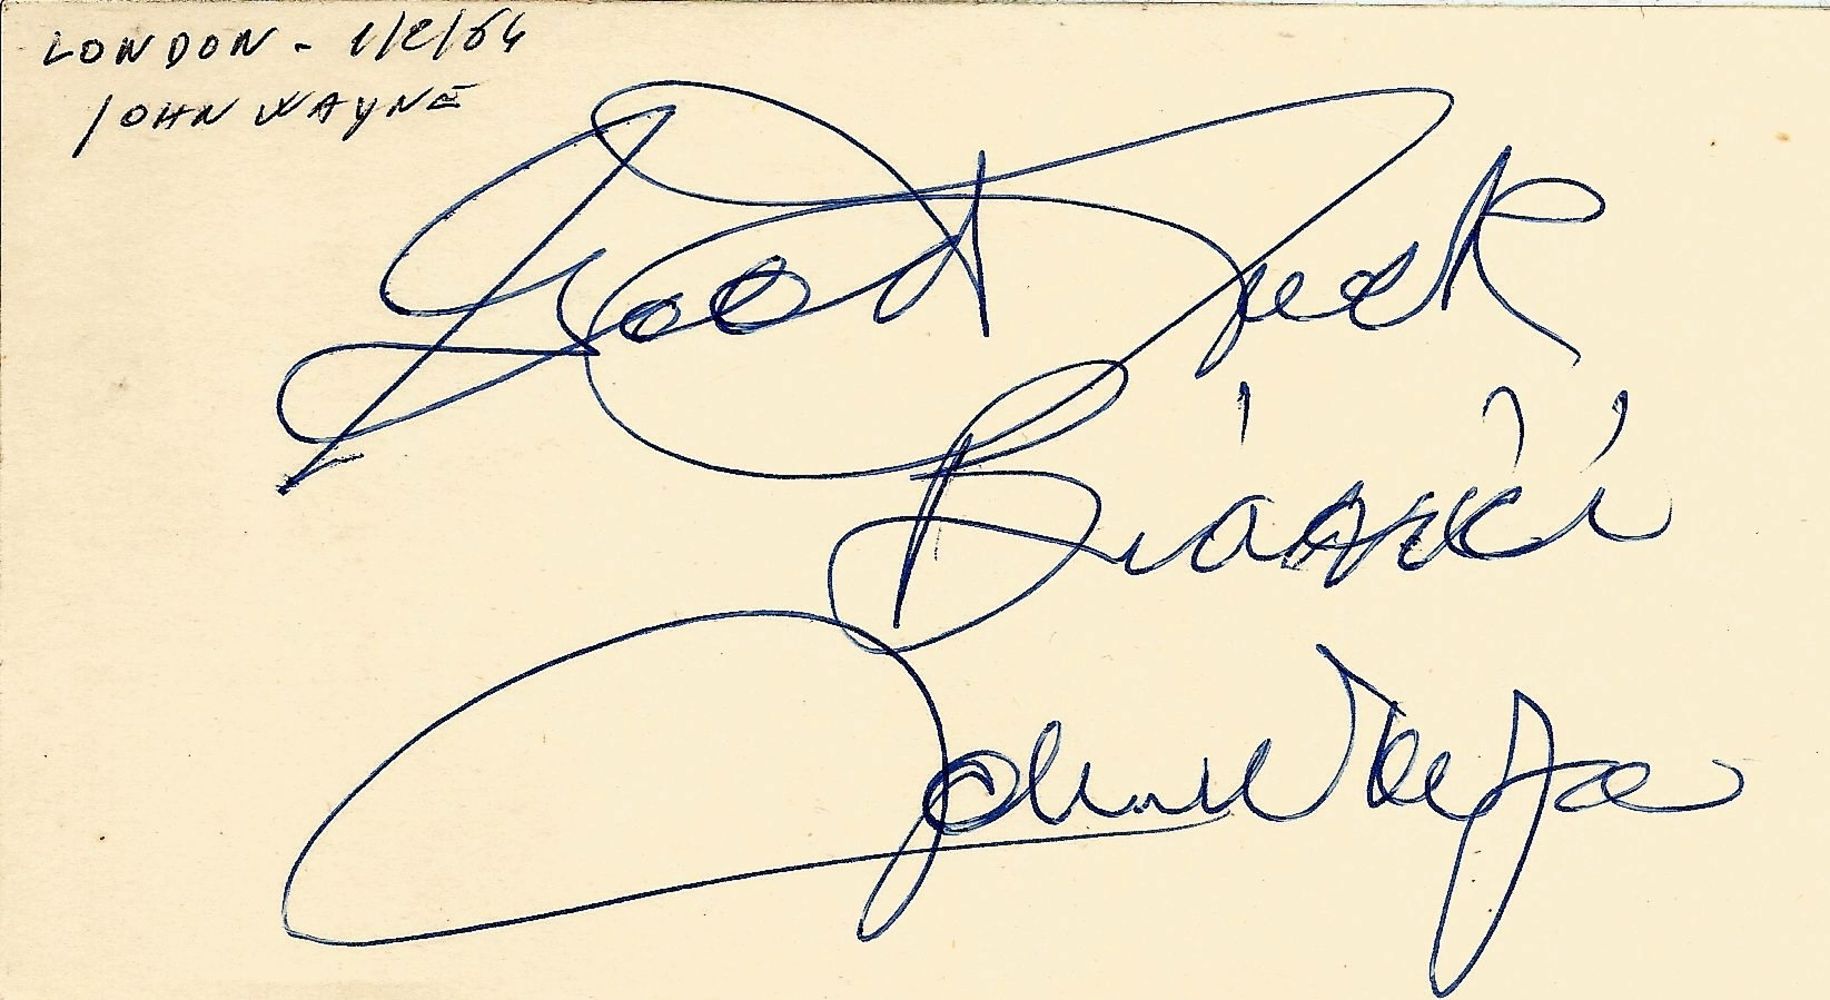 LONDON - 1/2/64
JOHN WAYNE
Good Luck
Bianki
John Wayne